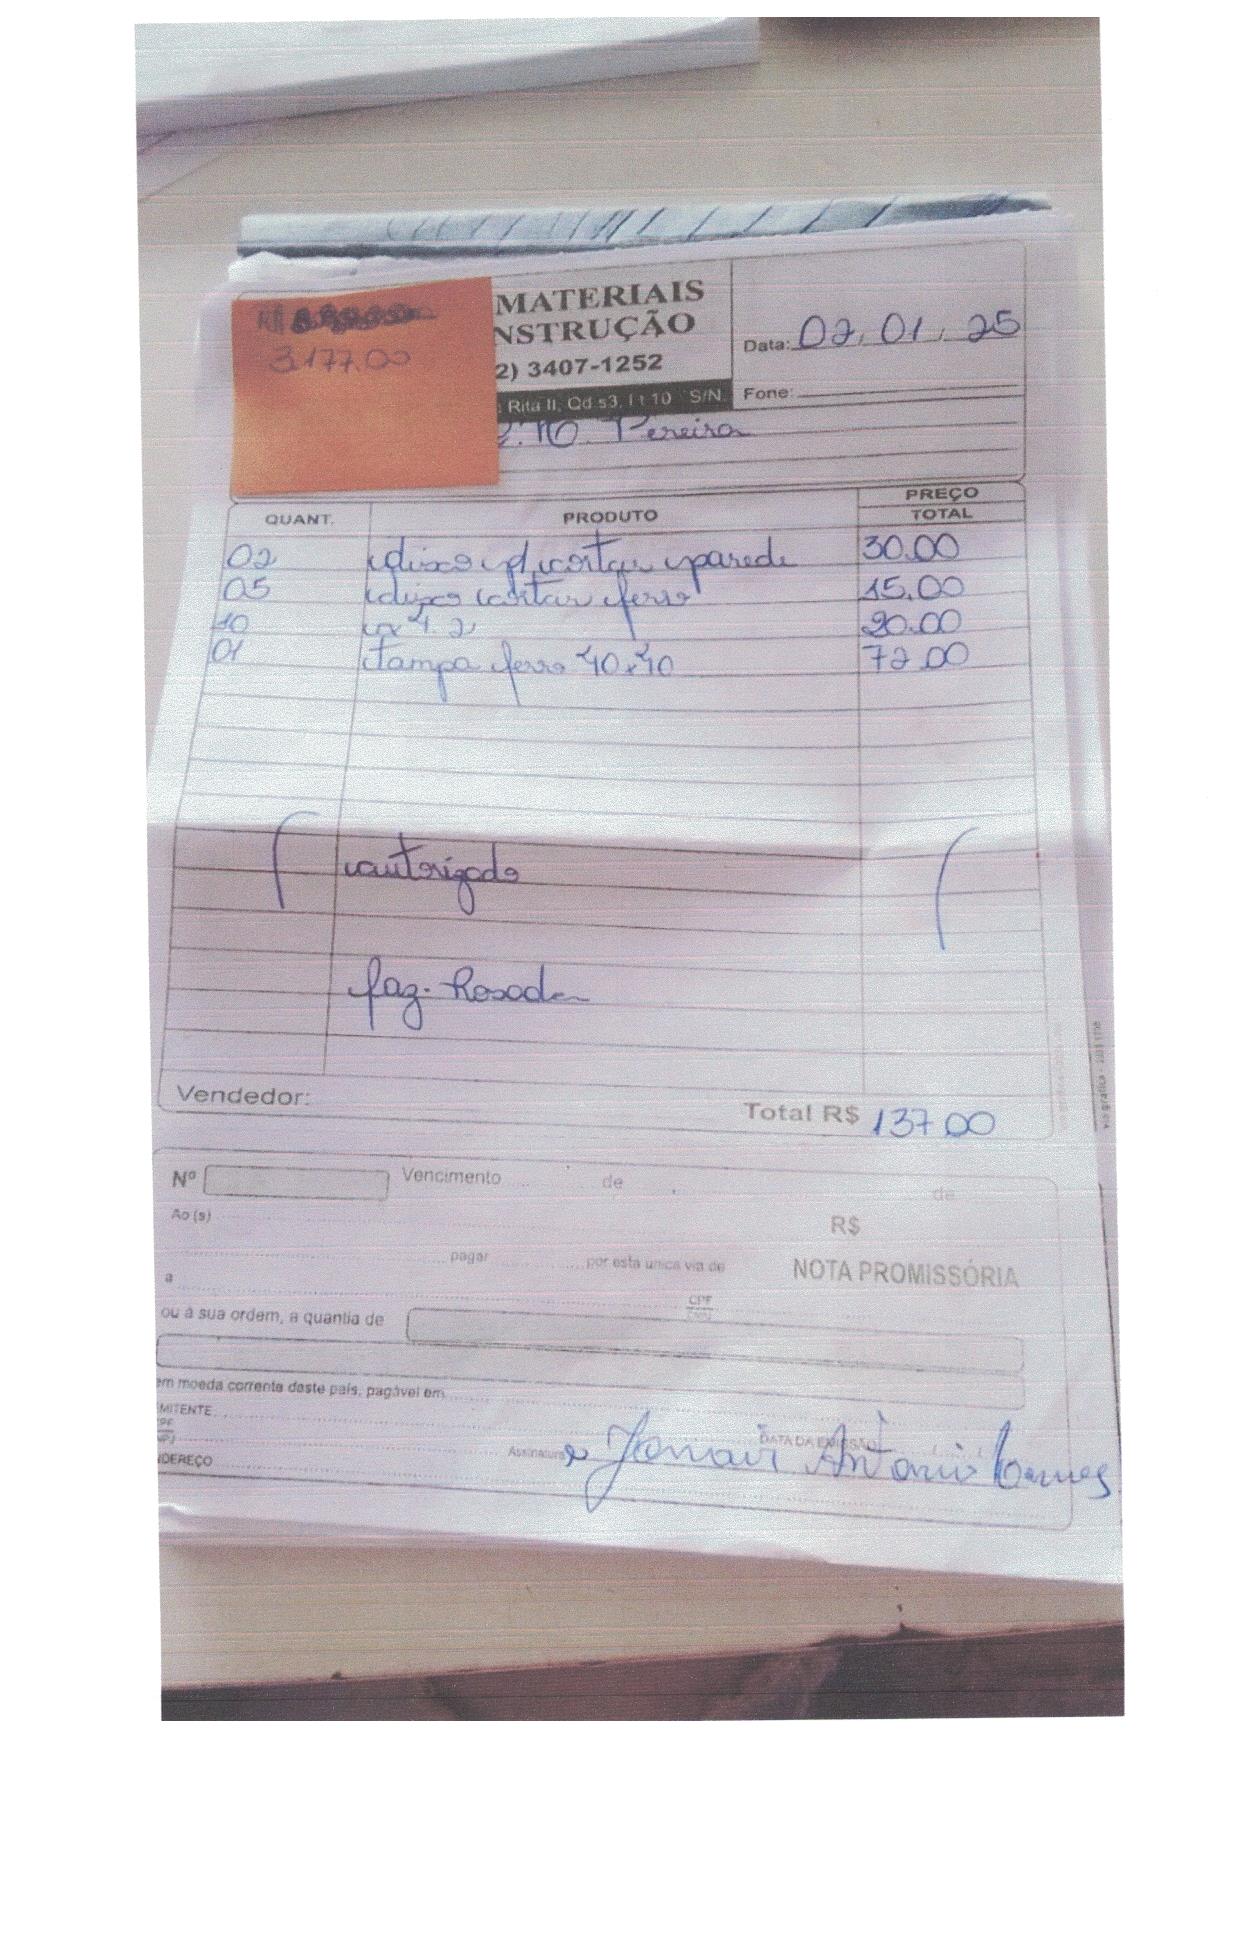 R$
3.177.00
MATERIAIS
NSTRUÇÃO
2) 3407-1252
: Rita II, Qd s3, Lt 10 S/N
Data: 02, 01, 25
Fone:
Pereira
QUANT. PRODUTO PREÇO
TOTAL
02 disco p/ cortar parede 30.00
05 disco cortar ferro 15.00
10 20.00
01 tampa ferro 40x40 72.00
autorizado
faz. Rosada
Vendedor:
Total R$ 137 00
Nº Vencimento de de
Ao(s) R$
pagar por esta única via de NOTA PROMISSÓRIA
a CPF
ou à sua ordem, a quantia de
em moeda corrente deste país, pagável em
MITENTE
DATA DA EMISSÃO
NDEREÇO Assinatura Antonio